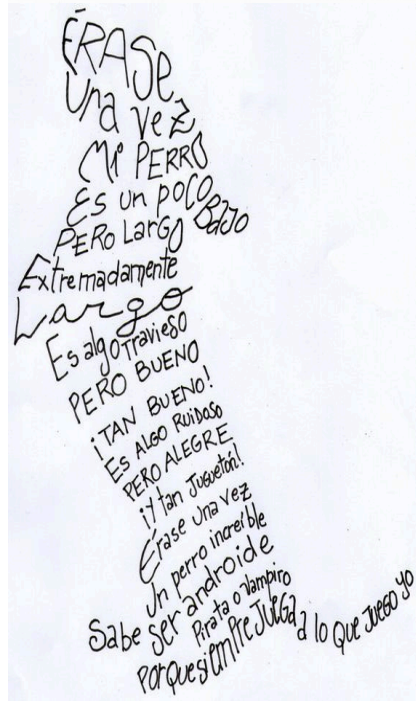 ÉRASE
Una vez
Mi PERRO
Es un poco
BaJo
PERO LarGO
Extremadamente
Largo
Es algo Travieso
PERO BUENO
¡TAN BUENO!
Es ALGO RUiDoso
PERO ALEGRE
¡Y tan Juguetón!
Érase una vez
Un perro increíble
Sabe ser androide
Pirata o vampiro
PorQue siEmPRE JUEGa a lo Que Juego yo